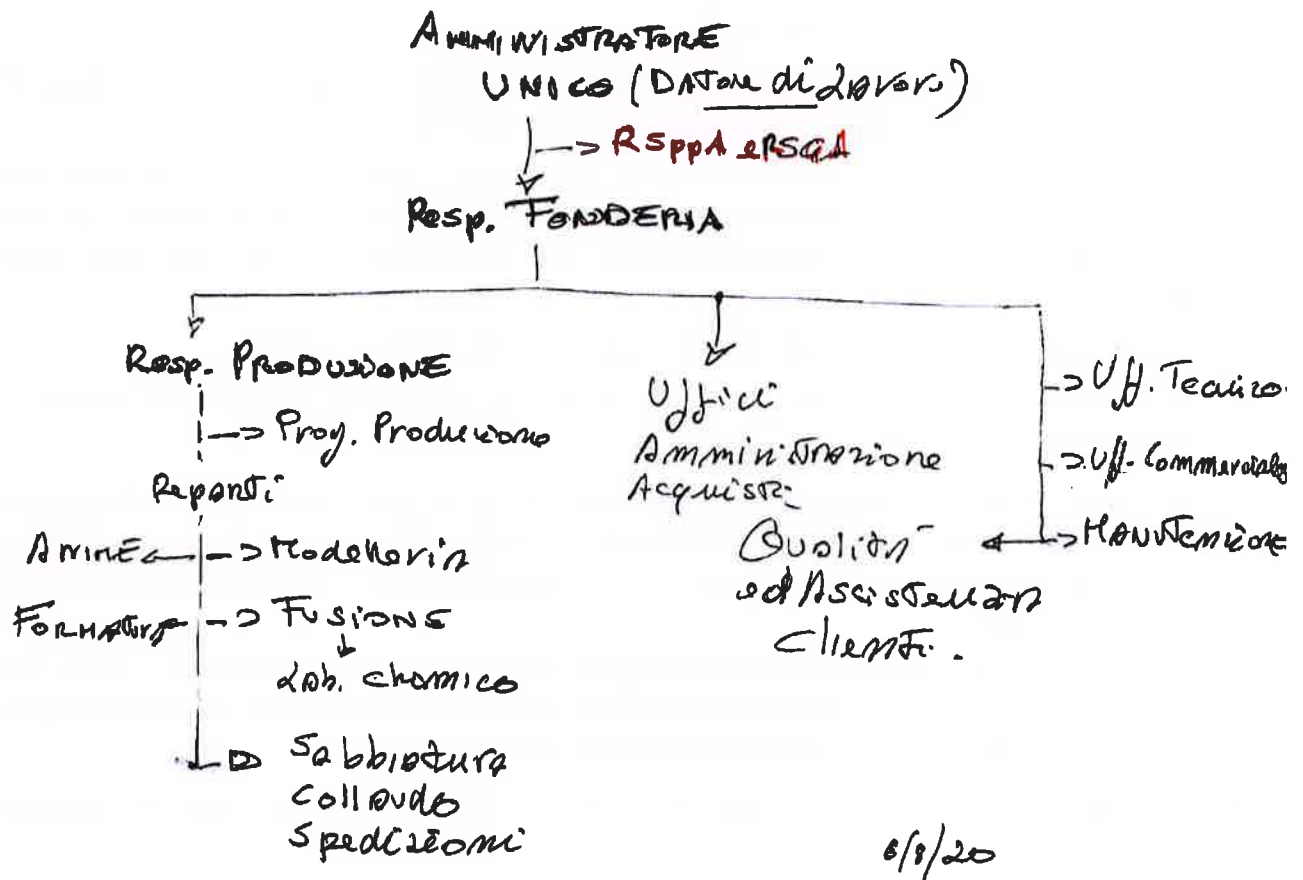 AMMINISTRATORE
UNICO (DATORE di LAVORO)
RSPPA e RSGA
Resp. FONDERIA
Resp. PRODUZIONE
Prog. Produzione
Reparti
ANIME
Modelleria
FORMATURA
FUSIONE
LAB. chimico
Sabbiatura
Collaudo
Spedizioni
Uffici
Amministrazione
Acquisti
Qualità
ed Assistenza
Clienti.
Uff. Tecnico
Uff. Commerciale
MANUTENZIONE
6/8/20